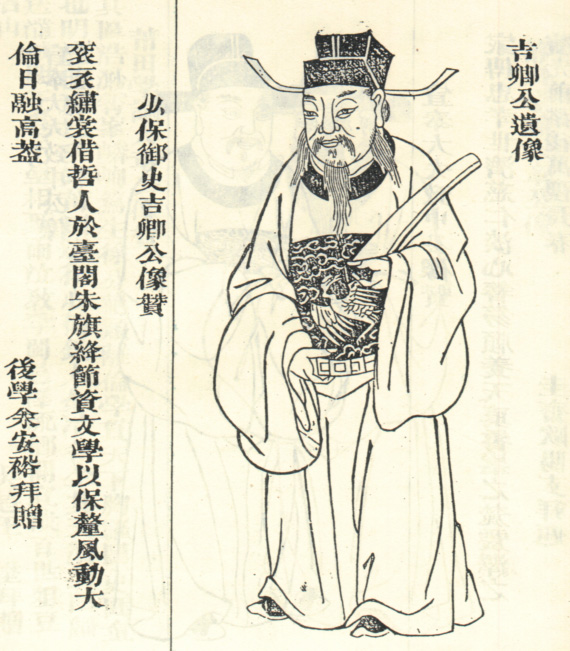 吉卿公遺像
少保御史吉卿公像贊
衮衣繡裳借哲人於臺閣朱旗絳節資文學以保釐風動大
倫日融高蓋
後學余安裕拜贈